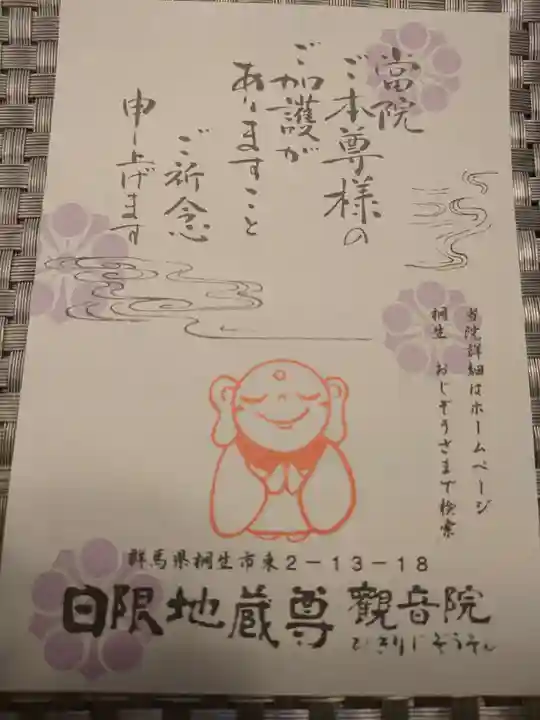 當院
ご本尊様の
ご加護が
ありますこと
ご祈念
申し上げます
当院詳細はホームページ
桐生 おじぞうさまで検索
群馬県桐生市東2-13-18
日限地蔵尊 觀音院
ひぎりじぞうそん